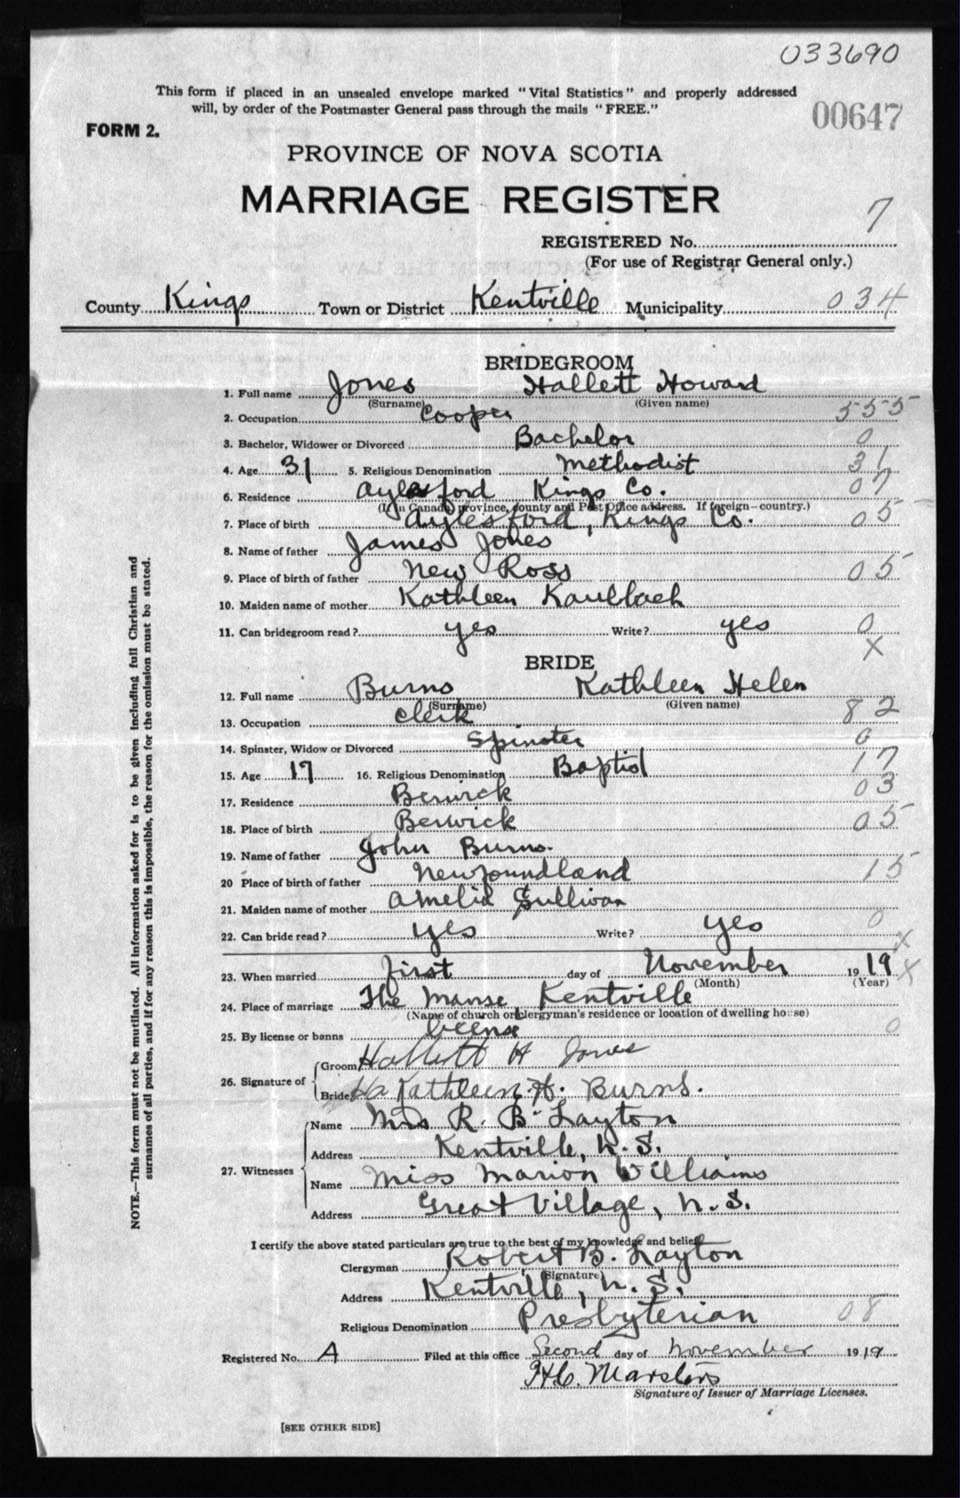 033690
This form if placed in an unsealed envelope marked "Vital Statistics" and properly addressed
will, by order of the Postmaster General pass through the mails "FREE."
00647
FORM 2.
PROVINCE OF NOVA SCOTIA
MARRIAGE REGISTER
7
REGISTERED No.
(For use of Registrar General only.)
County Kings Town or District Kentville Municipality 034
BRIDEGROOM
1. Full name Jones Hallett Howard
(Surname) (Given name)
2. Occupation Cooper 555
3. Bachelor, Widower or Divorced Bachelor 0
4. Age 31 5. Religious Denomination Methodist 31
6. Residence Aylesford Kings Co. 07
(If in Canada, province, county and Post Office address. If foreign-country.)
7. Place of birth Aylesford, Kings Co. 05
8. Name of father James Jones
9. Place of birth of father New Ross 05
10. Maiden name of mother Kathleen Kaulbach
11. Can bridegroom read? yes Write? yes 0
X
BRIDE
12. Full name Burns Kathleen Helen
(Surname) (Given name)
13. Occupation Clerk 82
14. Spinster, Widow or Divorced Spinster 0
15. Age 17 16. Religious Denomination Baptist 17
17. Residence Berwick 03
18. Place of birth Berwick 05
19. Name of father John Burns.
20 Place of birth of father Newfoundland 15
21. Maiden name of mother Amelia Sullivan
22. Can bride read? yes Write? yes 0
X
23. When married first day of November 1919 X
(Month) (Year)
24. Place of marriage The Manse, Kentville
(Name of church or clergyman's residence or location of dwelling house)
25. By license or banns license 0
26. Signature of Groom Hallett H Jones
Bride Kathleen H. Burns.
27. Witnesses
Name Mrs R. B. Layton
Address Kentville, N. S.
Name Miss Marion Williams
Address Great Village, N. S.
I certify the above stated particulars are true to the best of my knowledge and belief
Clergyman Robert B. Layton
(Signature)
Address Kentville, N. S.
Religious Denomination Presbyterian 08
Registered No. A Filed at this office Second day of November 1919
H.C. Marsters
Signature of Issuer of Marriage Licenses.
[SEE OTHER SIDE]
NOTE.—This form must not be mutilated. All information asked for is to be given including full Christian and
surnames of all parties, and if for any reason this is impossible, the reason for the omission must be stated.